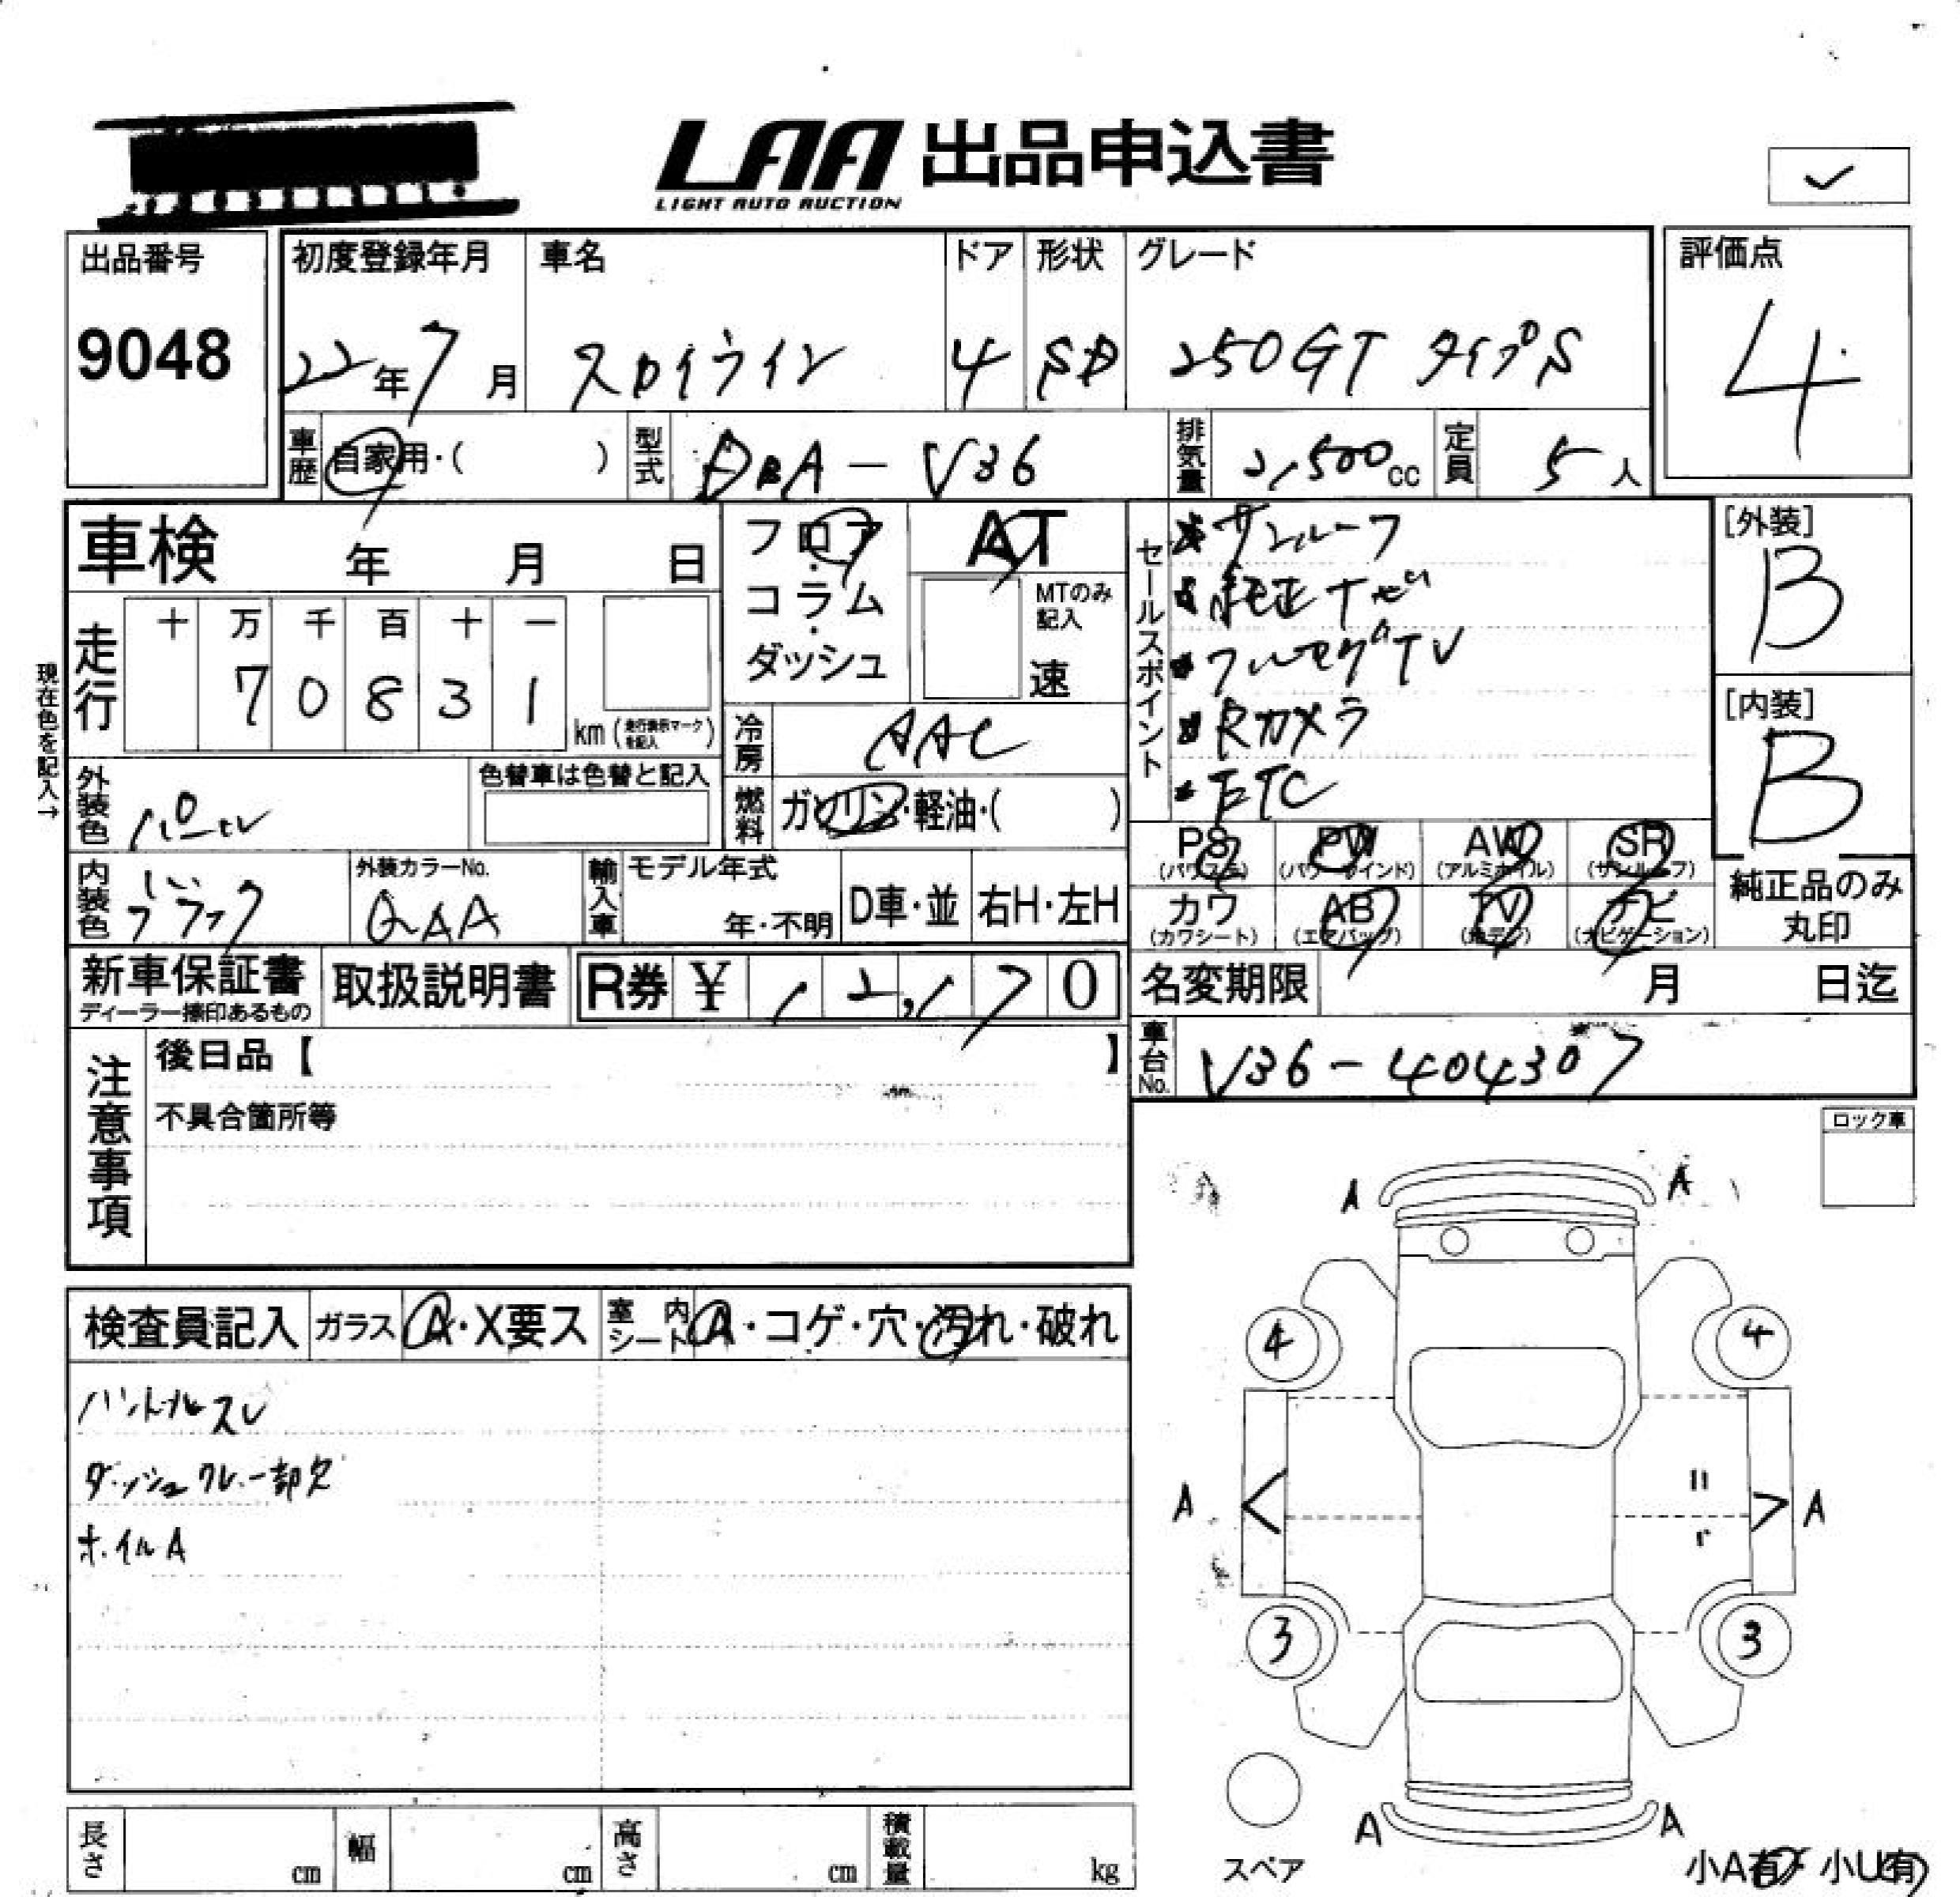 LAA 出品申込書
LIGHT AUTO AUCTION
✓
出品番号
9048
初度登録年月
22年7月
車名
スカイライン
ドア
4
形状
SD
グレード
250GT タイプS
評価点
4
車歴
自家用・(  )
型式
DBA-V36
排気量
2,500cc
定員
5人
車検 年 月 日
フロア
・
コラム
・
ダッシュ
AT
MTのみ記入
速
セールスポイント
サンルーフ
純正ナビ
フルセグTV
Rカメラ
ETC
[外装]
B
[内装]
B
現在色を記入→
走行
十 万 千 百 十 一
7 0 8 3 1
km (走行表示マークを記入)
冷房
AAC
外装色
パール
色替車は色替と記入
燃料
ガソリン・軽油・(  )
内装色
ブラック
外装カラーNo.
QAA
輸入車
モデル年式
年・不明
D車・並
右H・左H
PS
(パワステ)
PW
(パワーウインド)
AW
(アルミホイル)
SR
(サンルーフ)
カワ
(カワシート)
AB
(エアバッグ)
TV
(地デジ)
ナビ
(ナビゲーション)
純正品のみ
丸印
新車保証書
ディーラー捺印あるもの
取扱説明書
R券 ¥ 12,170
名変期限 月 日迄
車台No.
V36-404307
注意事項
後日品【 】
不具合箇所等
ロック車
検査員記入
ガラス
A・X要ス
室内シート
A・コゲ・穴・汚れ・破れ
ハンドルスレ
ダッシュワレ一部欠
ホイルA
A A
4 4
A A
3 3
A A
スペア
小A有・小U有
長さ cm
幅 cm
高さ cm
積載量 kg